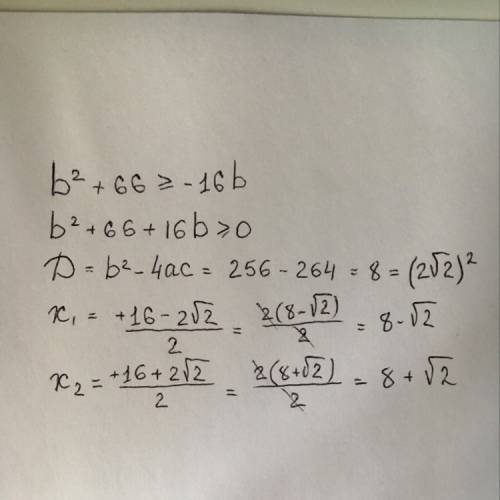 b² + 66 ≥ -16b
b² + 66 + 16b ≥ 0
D = b² - 4ac = 256 - 264 = 8 = (2√2)²
x₁ = +16 - 2√2 / 2 = 2(8-√2) / 2 = 8 - √2
x₂ = +16 + 2√2 / 2 = 2(8+√2) / 2 = 8 + √2